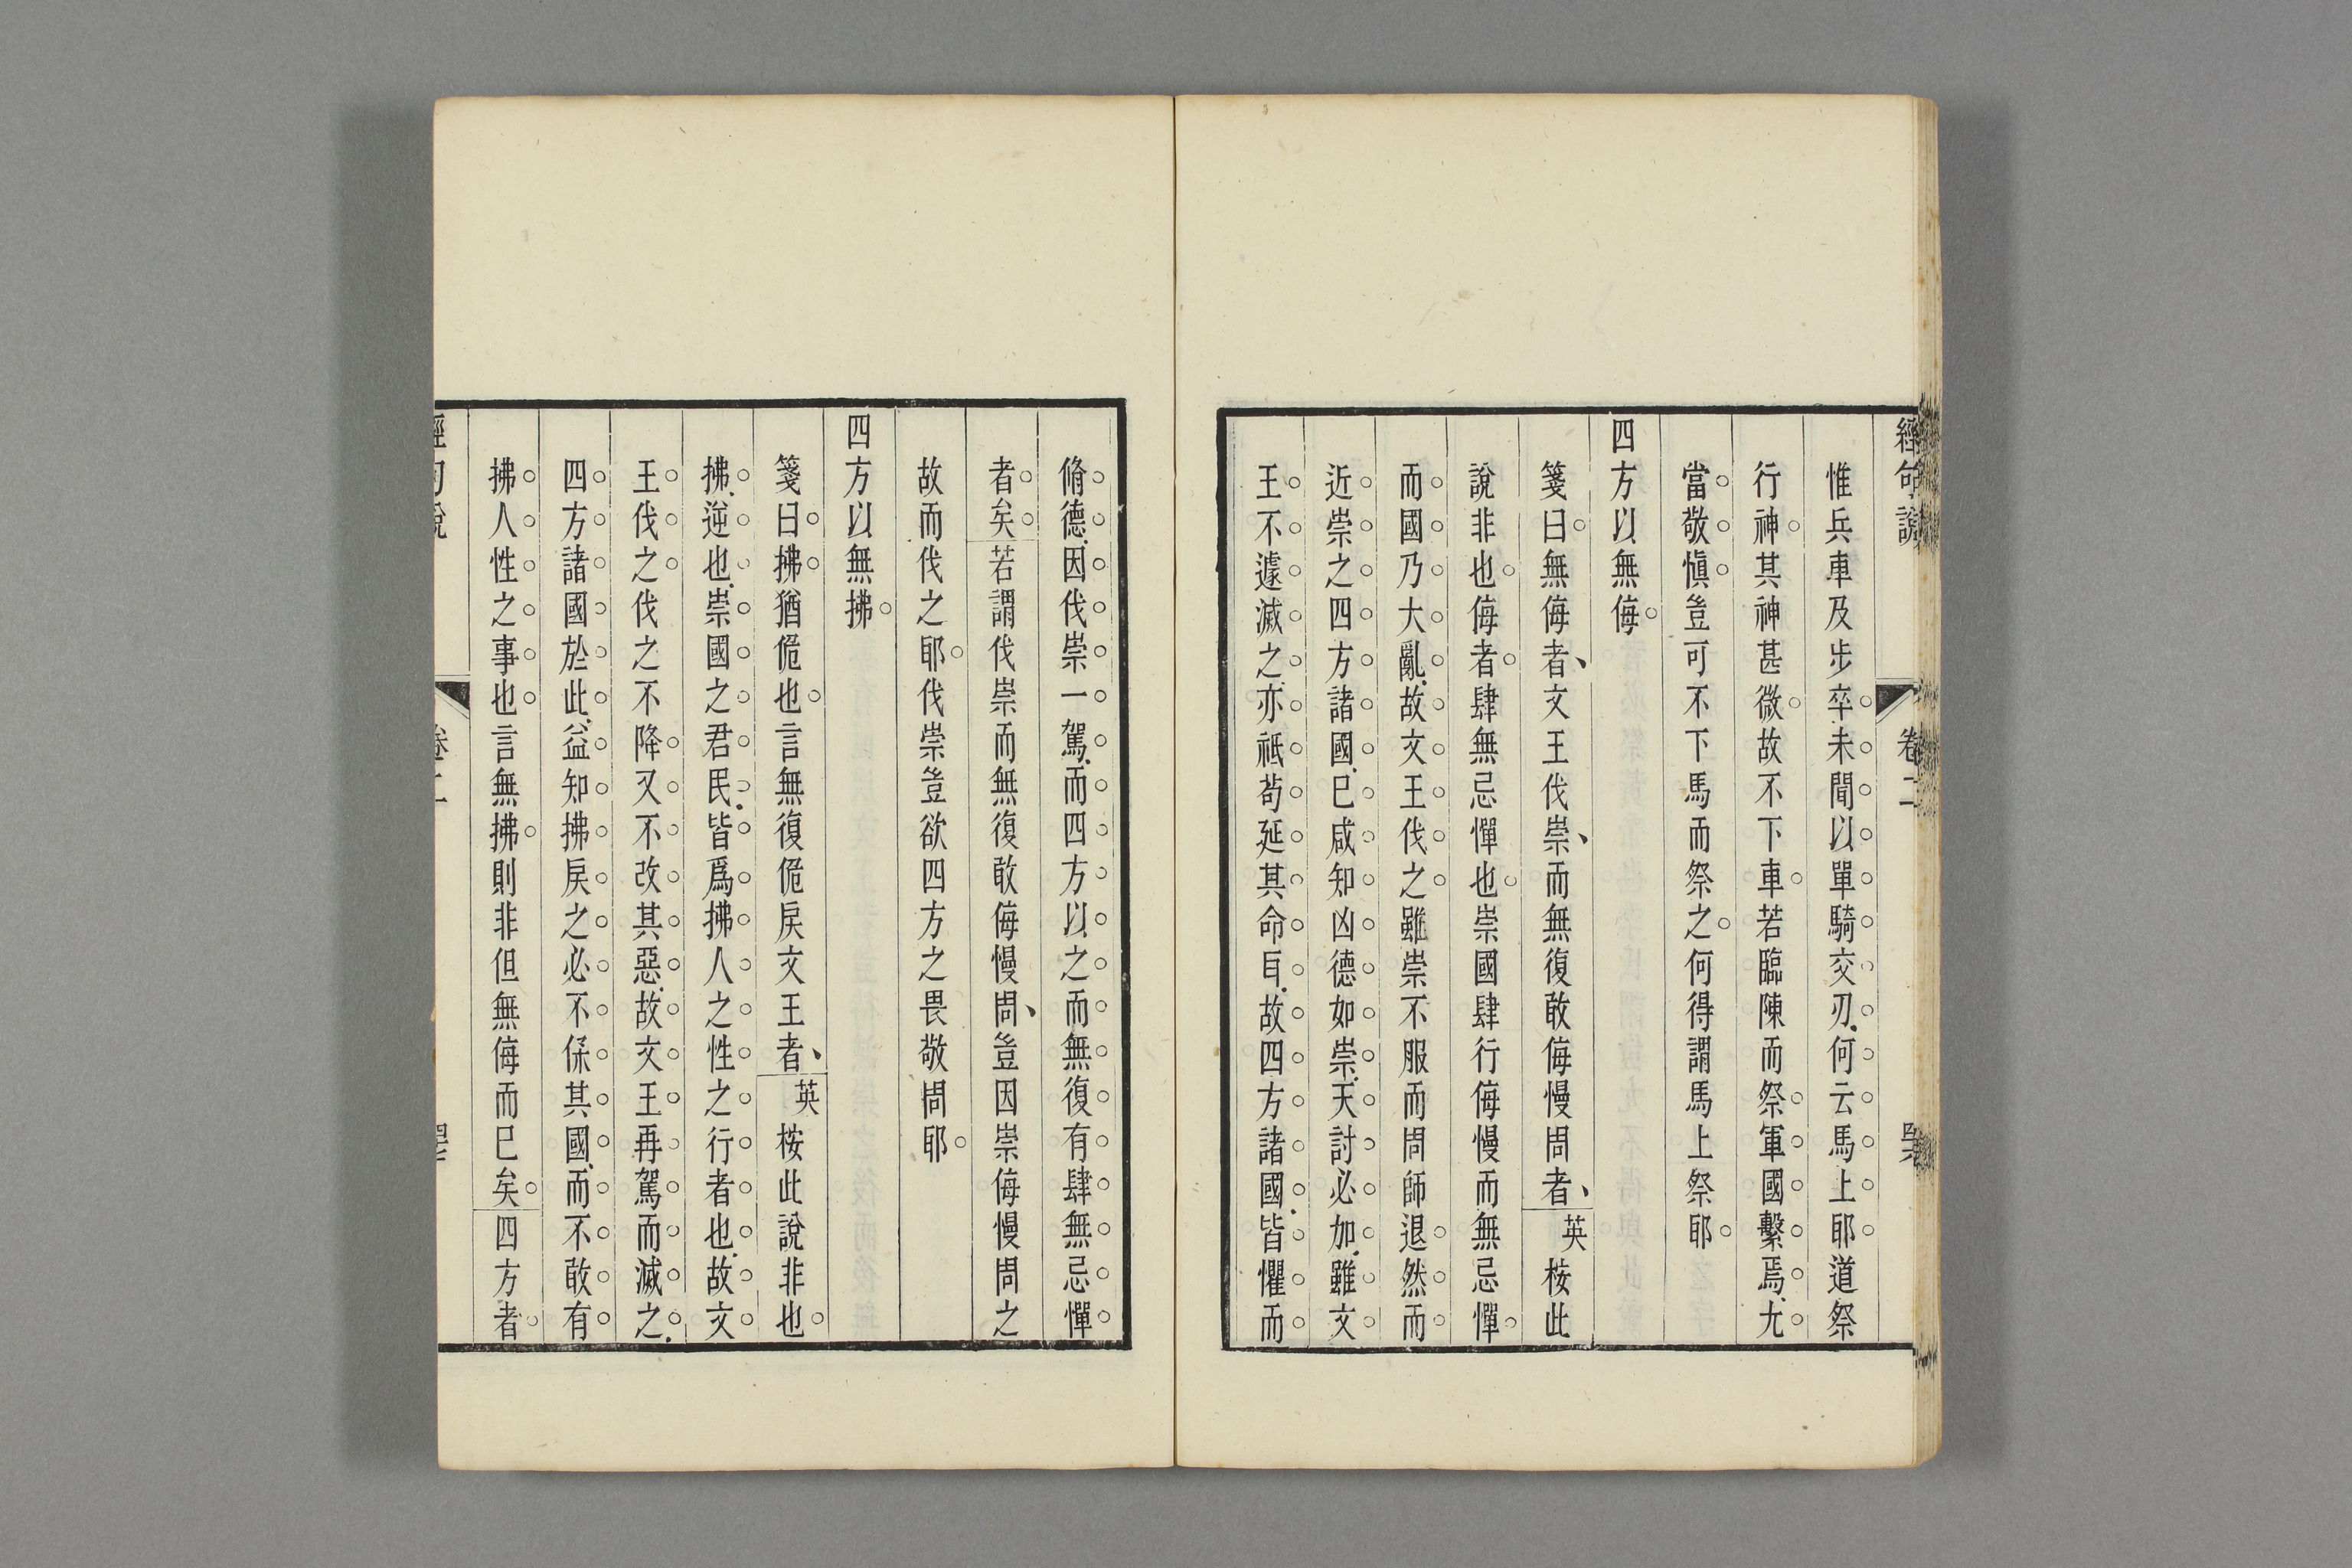 經句說 卷二
惟兵車及步卒未聞以單騎交刃何云馬上耶道祭
行神其神甚微故不下車若臨陳而祭軍國繫焉尤
當敬愼豈可不下馬而祭之何得謂馬上祭耶
四方以無侮
箋曰無侮者文王伐崇而無復敢侮慢周者英桉此
說非也侮者肆無忌憚也崇國肆行侮慢而無忌憚
而國乃大亂故文王伐之雖崇不服而周師退然而
近崇之四方諸國已咸知凶德如崇天討必加雖文
王不遽滅之亦祇苟延其命耳故四方諸國皆懼而
脩德因伐崇一駕而四方以之而無復有肆無忌憚
者矣若謂伐崇而無復敢侮慢周豈因崇侮慢周之
故而伐之耶伐崇豈欲四方之畏敬周耶
四方以無拂
箋曰拂猶佹也言無復佹戾文王者英桉此說非也
拂逆也崇國之君民皆爲拂人之性之行者也故文
王伐之伐之不降又不改其惡故文王再駕而滅之
四方諸國於此益知拂戾之必不保其國而不敢有
拂人性之事也言無拂則非但無侮而已矣四方者
經句說 卷二